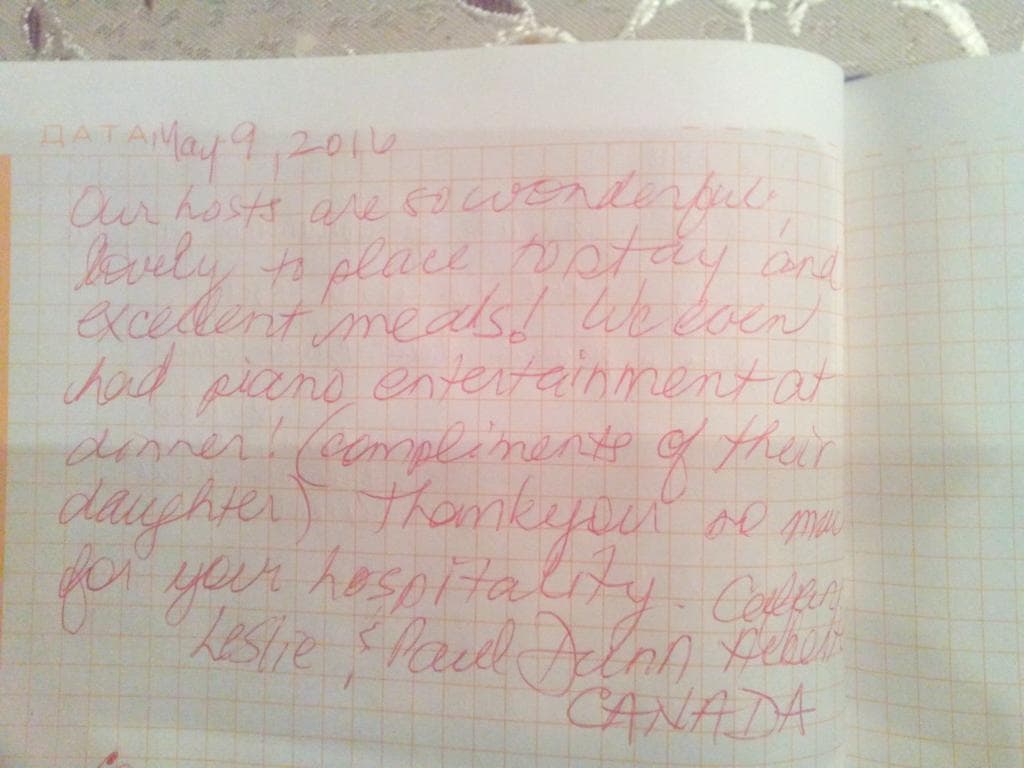 ДАТА May 9, 2016
Our hosts are so wonderful,
lovely to place to stay and
excellent meals! We even
had piano entertainment at
dinner! (compliments of their
daughter) Thankyou so
for your hospitality.
Leslie & Paul Dunn
CANADA